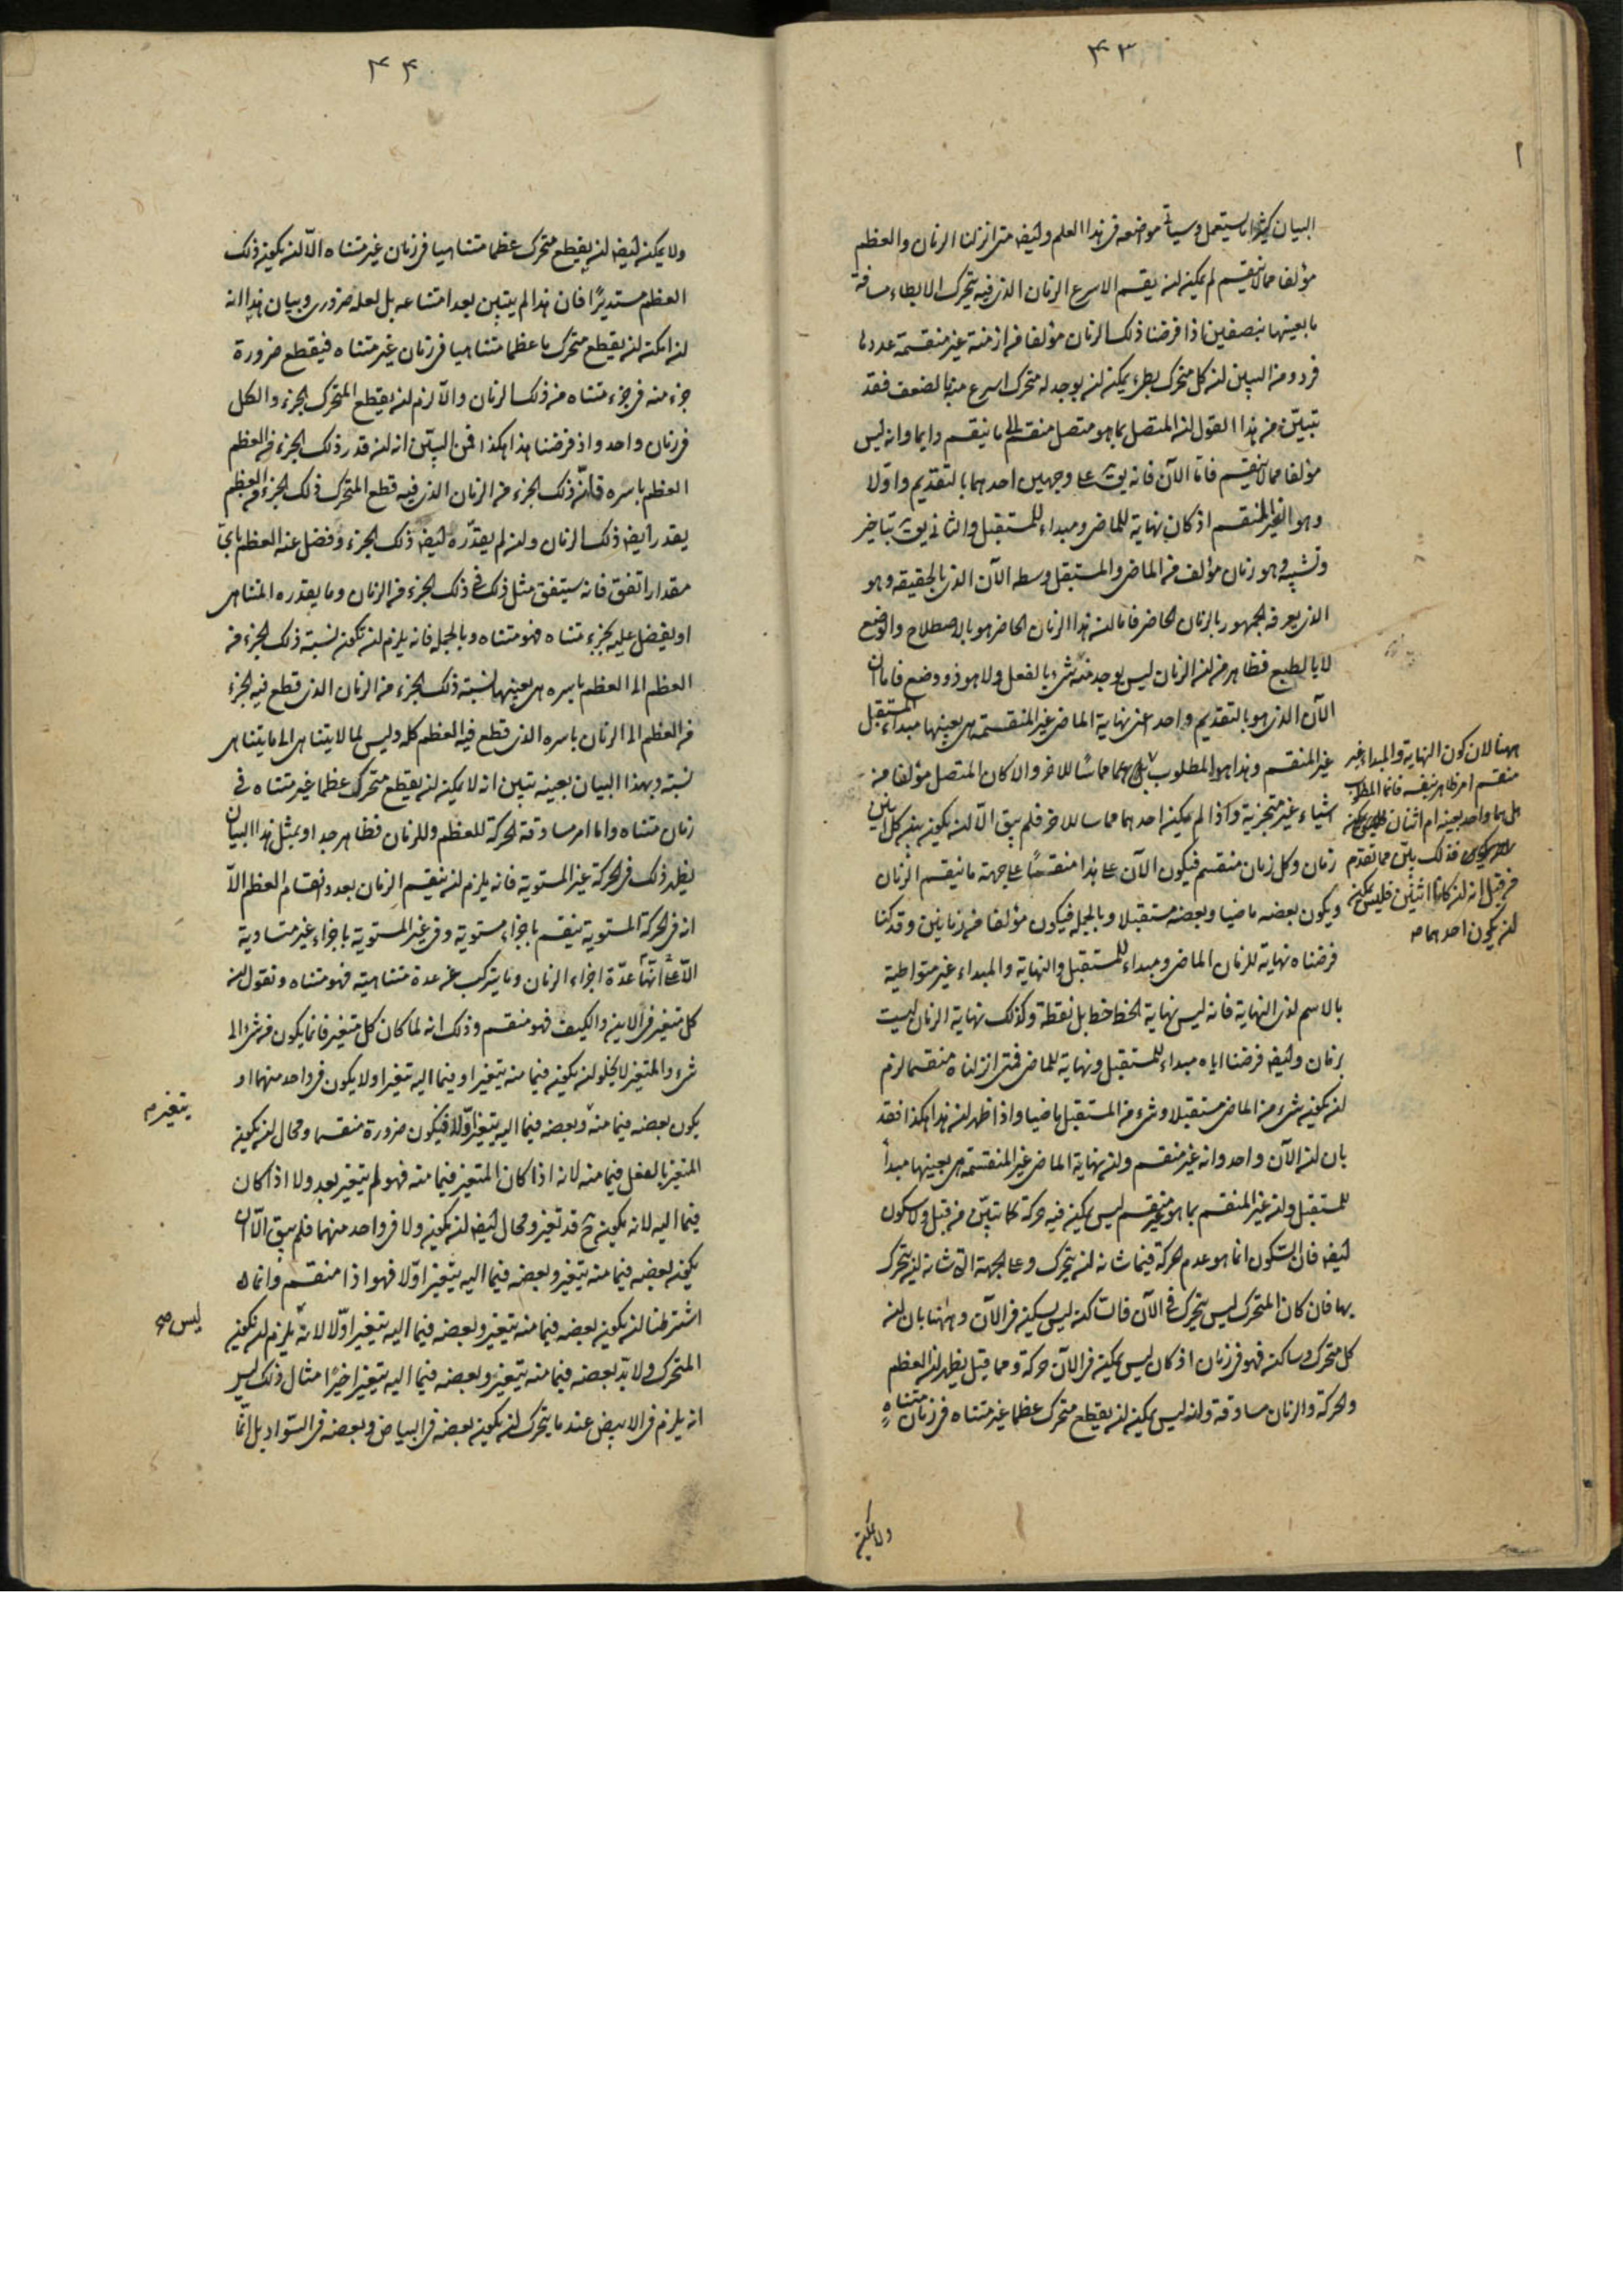 ٤٣
البيان كثيرا ما يستعمل وسيأتي موضعه في هذا العلم وايضا متى انزلنا الزمان والعظم
مؤلفا مما لا ينقسم لم يمكن ان يقسم الاسرع الزمان الذي فيه يتحرك الابطاء مسافة
ما بعينها بنصفين اذا فرضنا ذلك الزمان مؤلفا من ازمنة غير منقسمة عددها
فرد ومن البين ان كل متحرك بطيء يمكن ان يوجد له متحرك اسرع منه بالضعف فقد
تبيّن من هذا القول ان المتصل بما هو متصل منقسم الى ما ينقسم دايما وانه ليس
مؤلفا مما لا ينقسم فاما الآن فانه يق على وجهين احدهما بالتقديم واولا
وهو الغير المنقسم اذ كان نهاية للماضي ومبداء للمستقبل والثاني يق بتاخير
وتشبيه وهو زمان مؤلف من الماضي والمستقبل وسطه الآن الذي بالحقيقه وهو
الذي يعرفه الجمهور بالزمان الحاضر فاما ان هذا الزمان الحاضر هو بالاصطلاح والوضع
لا بالطبع فظاهر من ان الزمان ليس يوجد منه شيء بالفعل ولا هو ذو وضع فاما ان
الآن الذي هو بالتقديم واحد اعني نهاية الماضي غير المنقسمة هي بعينها مبداء المستقبل
غير المنقسم وهذا هو المطلوب هل هما مماسّا للاخر والا كان المتصل مؤلفا من
اشياء غير متجزية واذا لم يمكن احدهما مماسا للاخر فلم يبق الا ان يكون بين كل اثنين
زمان وكل زمان منقسم فيكون الآن على هذا منقسمًا على جهة ما ينقسم الزمان
ويكون بعضه ماضيا وبعضه مستقبلا وبالجملة فيكون مؤلفا من زمانين وقد كنا
فرضناه نهاية للزمان الماضي ومبداء للمستقبل والنهاية والمبداء غير متواطية
بالاسم لذي النهاية فانه ليس نهاية الخط خط بل نقطة وكذلك نهاية الزمان ليست
بزمان وايضا فرضنا اياه مبداء للمستقبل ونهاية للماضي فمتى انزلناه منقسما لزم
ان يكون شيء من الماضي مستقبلا وشيء من المستقبل ماضيا واذا ظهر ان هذا هكذا فقد
بان ان الآن واحد وانه غير منقسم وان نهاية الماضي غير المنقسمة هي بعينها مبدأ
للمستقبل وان غير المنقسم بما هو غير منقسم ليس يمكن فيه حركة كما تبيّن من قبل ولا سكون
ايضا فان السكون انما هو عدم الحركة فيما شانه ان يتحرك وعلى الجهة التي شانه ان يتحرك
بها فان كان المتحرك ليس يتحرك في الآن فالساكن ليس يسكن في الآن وههنا بان ان
كل متحرك وساكن فهو في زمان اذ كان ليس يمكن في الآن حركة ومما قبل يظهر ان العظم
والحركة والزمان مساوقة وانه ليس يمكن ان يقطع متحرك عظما غير متناه في زمان متناهٍ
ههنا لان كون النهاية والمبداء غير
منقسم امر ظاهر بنفسه فانما المطلوب
هل هما واحد بعينه ام اثنان
فذلك بيّن مما تقدم
من قبل انه ان كانا اثنين فليس يمكن
ان يكون احدهما
ولا يمكن
٤٤
ولا يمكن ايضا ان يقطع متحرك عظما متناهيا في زمان غير متناه الّا ان يكون ذلك
العظم مستديرًا فان هذا لم يتبين بعد امتناعه بل لعله ضروري وبيان هذا انه
ان امكن ان يقطع متحرك ما عظما متناهيا في زمان غير متناه فيقطع ضرورة
جزء منه في جزء متناه من ذلك الزمان والّا لزم ان يقطع المتحرك الجزء والكل
في زمان واحد واذ فرضنا هذا هكذا فمن البيّن انه ان قدر ذلك الجزء من العظم
العظم باسره فانّ ذلك الجزء من الزمان الذي فيه قطع المتحرك ذلك الجزء من العظم
يقدر ايضا ذلك الزمان وان لم يقدّره ايضا ذلك الجزء وفضل عنه العظم باي
مقدار اتفق فانه سيتفق مثل ذلك في ذلك الجزء من الزمان وما يقدره المتناهي
او يفضل عليه بجزء متناه فهو متناه وبالجملة فانه يلزم ان تكون نسبة ذلك الجزء من
العظم الى العظم باسره هي بعينها نسبة ذلك الجزء من الزمان الذي قطع فيه الجزء
من العظم الى الزمان باسره الذي قطع فيه العظم كله وليس لما لا يتناهى الى ما يتناهى
نسبة وبهذا البيان بعينه تبين انه لا يمكن ان يقطع متحرك عظما غير متناه في
زمان متناه واما امر مساوقة الحركة للعظم وللزمان فظاهر جدا وبمثل هذا البيان
يظهر ذلك في الحركة غير المستوية فانه يلزم ان ينقسم الزمان بعدد انقسام العظم الّا
انه في الحركة المستوية ينقسم باجزاء مستوية وفي غير المستوية باجزاء غير متساوية
الّا انها عدّة اجزاء الزمان وما يتركب عن عدة متناهية فهو متناه ونقول ان
كل متغير في الاين والكيف فهو منقسم وذلك انه لما كان كل متغير فانما يكون من شيء الى
شيء والمتغير لا يخلو ان يكون فيما منه يتغير او فيما اليه تغير اولا يكون في واحد منهما او
يكون بعضه فيما منه وبعضه فيما اليه يتغير اوّلا فيكون ضرورة منقسما ومحال ان يكون
المتغير بالفعل فيما منه لانه اذا كان المتغير فيما منه فهو لم يتغير بعد ولا اذا كان
فيما اليه لانه يكون ح قد تغير ومحال ايضا ان يكون ولا في واحد منهما فلم يبق الّا ان
يكون بعضه فيما منه يتغير وبعضه فيما اليه يتغير اوّلا فهو اذا منقسم وانما
اشترطنا ان يكون بعضه فيما منه يتغير وبعضه فيما اليه يتغير اوّلا لانه يلزم ان يكون
المتحرك ولا بد بعضه فيما منه يتغير وبعضه فيما اليه يتغير اخيرًا مثال ذلك ليس
انه يلزم في الابيض عند ما يتحرك ان يكون بعضه في البياض وبعضه في السواد بل انّما
يتغير
ليس